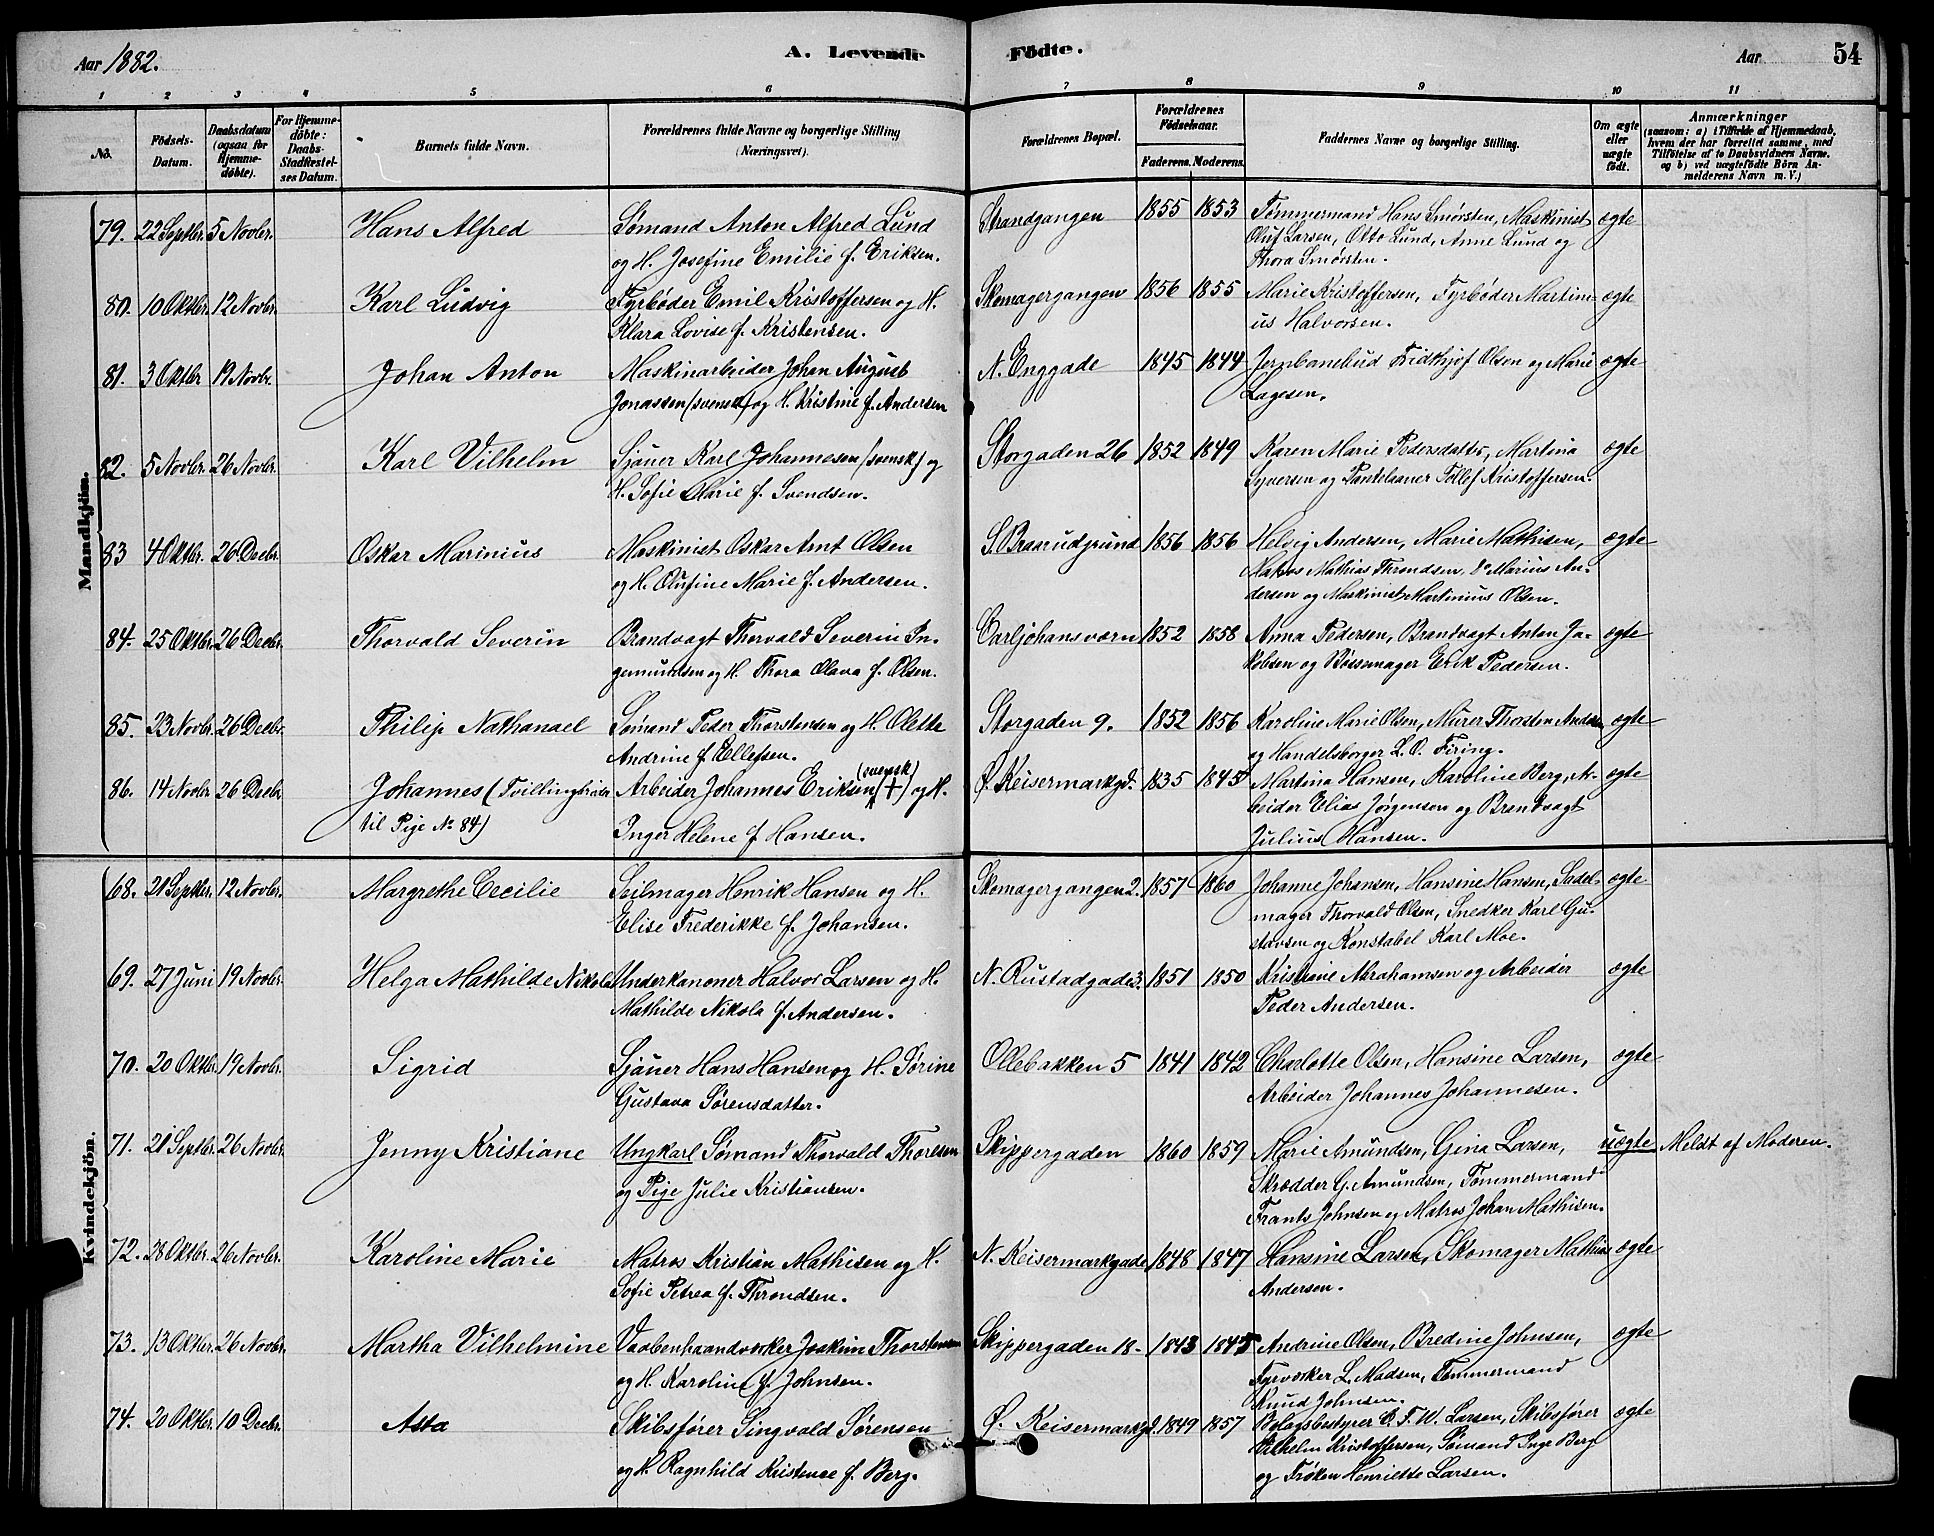 Aar 1882. A. Levende Födte. Aar 54
1 2 3 4 5 6 7 8 9 10 11
No. Födsels-Datum. Daabsdatum (ogsaa for Hjemmedöbte). For Hjemmedöbte: Daabs-Stadfæstelses Datum. Barnets fulde Navn. Forældrenes fulde Navne og borgerlige Stilling (Næringsvei). Forældrenes Bopæl. Forældrenes Födselsaar. Faderens. Moderens. Faddernes Navne og borgerlige Stilling. Om ægte eller uægte födt. Anmærkninger (saasom: a) i Tilfælde af Hjemmedaab, hvem der har forrettet samme, med Tilföielse af to Daabsvidners Navne, og b) ved uægtefödte Börn Anmelderens Navn m. V.)
Mandkjön.
79. 22 Septbr. 5 Novbr. Hans Alfred Sømand Anton Alfred Lund Strandgangen 1855 1853 Tømmermand Hans Smørsten, Maskinist ægte
og H. Josefine Emilie f. Eriksen. Oluf Larsen, Otto Lund, Anne Lund og
Thora Smørsten.
80. 10 Oktbr. 12 Novbr. Karl Ludvig Fyrbøder Emil Kristoffersen og H. Skomagergangen 1856 1855 Marie Kristoffersen, Fyrbøder Martin- ægte
Klara Lovise f. Kristensen. us Halvorsen.
81. 3 Oktbr 19 Novbr. Johan Anton Maskinarbeider Johan August N. Enggade 1845 1844 Jernbanebud Fridthjof Olsen og Marie ægte
Jonassen (svensk) og H. Kristine f. Andersen Lagesen.
82. 5 Novbr. 26 Novbr. Karl Vilhelm Sjauer Karl Johannesen (svensk) og Storgaden 26 1852 1849 Karen Marie Pedersdatter, Martina ægte
H. Sofie Marie f. Svendsen. Syversen og Pantelaaner Tollef Kristoffersen.
83 4 Oktbr. 26 Decbr. Oskar Marinius Maskinist Oskar Amt Olsen S. Braarudgrund 1856 1856 Helvig Andersen, Marie Mathisen, ægte
og H. Olufine Marie f. Andersen. Matros Mathias Throndsen, do Marius An-
dersen og Maskinist Martinius Olsen.
84. 25 Oktbr. 26 Decbr. Thorvald Severin Brandvagt Thorvald Severin In- Carljohansværn 1852 1858 Anna Pedersen, Brandvagt Anton Ja- ægte
gemundsen og H. Thora Olava f. Olsen. kobsen og Bøssemager Erik Pedersen.
85. 23 Novbr. 26 Decbr. Philip Nathanael Sømand Peder Thorstensen og H. Olette Storgaden 9. 1852 1856 Karoline Marie Olsen, Murer Thorsten Anders ægte
Andrine f. Ellefsen. og Handelsborger L. O. Firing.
86. 14 Novbr 26 Decbr. Johannes (Tvillingbroder Arbeider Johannes Eriksen (svensk) (+) og H. Ø. Keisermarkgd. 1835 1845 Martina Hansen, Karoline Berg, Ar- ægte
til Pige No 84) Inger Helene f. Hansen. beider Elias Jørgensen og Brandvagt
Julius Hansen.
Kvindekjön.
68. 21 Septbr. 12 Novbr. Margrethe Cecilie Seilmager Henrik Hansen og H. Skomagergangen 2. 1857 1860 Johanne Johansen, Hansine Hansen, Sadel- ægte
Elise Frederikke f. Johansen. mager Thorvald Olsen, Snedker Karl Gu-
stavsen og Konstabel Karl Moe.
69. 27 Juni 19 Novbr. Helga Mathilde Nikola Underkanoner Halvor Larsen og H. N. Rustadgade 3. 1851 1850 Kristiane Abrahamsen og Arbeider ægte
Mathilde Nikola f. Andersen. Peder Andersen.
70. 20 Oktbr. 19 Novbr. Sigrid Sjauer Hans Hansen og H. Sørine Ollebakken 5 1841 1842 Charlotte Olsen, Hansine Larsen, ægte
Gustava Sørensdatter. Arbeider Johannes Johannesen.
71. 21 Septbr. 26 Novbr. Jenny Kristiane Ungkarl Sømand Thorvald Thoresen Skippergaden 1860 1859 Marie Amundsen, Gina Larsen, uægte Meldt af Moderen.
og Pige Julie Kristiansen. Skrædder G. Amundsen, Tømmermand
Frants Johnsen og Matros Johan Mathisen.
72. 28 Oktbr. 26 Novbr. Karoline Marie Matros Kristian Mathisen og H. N. Keisermarkgade 1848 1847 Hansine Larsen, Skomager Mathias ægte
Sofie Petrea f. Throndsen. Andersen.
73. 13 Oktbr. 26 Novbr. Martha Vilhelmine Vaabenhaandverker Joakim Thorstensen Skippergaden 18- 1843 1845 Andrine Olsen, Bredine Johnsen, ægte
og H. Karoline f. Johnsen. Fyrverker L. Madsen, Tømmermand
Knud Johnsen.
74. 20 Oktbr. 10 Decbr. Asta Skibsfører Singvald Sørensen Ø. Keisermarkgd. 1849 1857 Bolagsbestyrer C. F. W. Larsen, Skibsfører ægte
og H. Ragnhild Kristence f. Berg. Vilhelm Kristoffersen, Sømand Inge Berg
og Frøken Henriette Larsen.